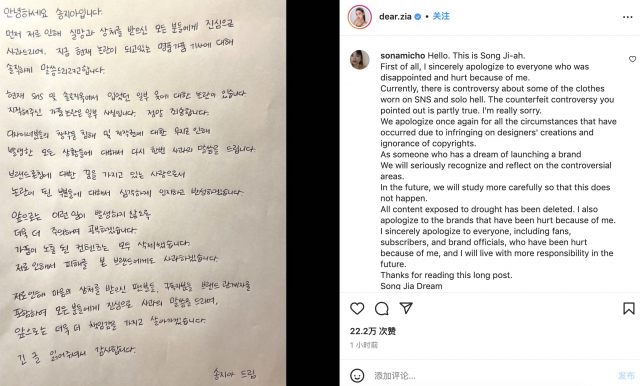 안녕하세요 송지아입니다.
먼저 저로 인해 실망과 상처를 받으신 모든 분들에게 진심으로
사과드리며, 지금 현재 논란이 되고있는 명품가품 기사에 대해
솔직하게 말씀드리려고합니다.
현재 SNS 및 솔로지옥에서 입었던 일부 옷에 대한 논란이 있습니다.
지적해주신 가품논란은 일부 사실입니다. 정말 죄송합니다.
디자이너분들의 창작물 침해 및 저작권에 대한 무지로 인해
발생한 모든 상황들에 대해서 다시 한번 사과의 말씀을 드립니다.
브랜드론칭에 대한 꿈을 가지고 있는 사람으로서
논란이 된 부분들에 대해서 심각하게 인지하고 반성하겠습니다.
앞으로는 이런 일이 발생하지 않도록
더욱 더 주의하며 공부하겠습니다.
가품이 노출 된 컨텐츠는 모두 삭제했습니다.
저로 인해서 피해를 본 브랜드에게도 사과하겠습니다.
저로인해 마음의 상처를 받으신 팬분들, 구독자분들 브랜드 관계자를
포함하여 모든분들에게 진심으로 사과의 말씀을 드리며,
앞으로는 더욱 더 책임감을 가지고 살아가겠습니다.
긴 글 읽어주셔서 감사합니다.
송지아 드림
dear.zia • 关注
sonamicho Hello. This is Song Ji-ah.
First of all, I sincerely apologize to everyone who was
disappointed and hurt because of me.
Currently, there is controversy about some of the clothes
worn on SNS and solo hell. The counterfeit controversy you
pointed out is partly true. I'm really sorry.
We apologize once again for all the circumstances that have
occurred due to infringing on designers' creations and
ignorance of copyrights.
As someone who has a dream of launching a brand
We will seriously recognize and reflect on the controversial
areas.
In the future, we will study more carefully so that this does
not happen.
All content exposed to drought has been deleted. I also
apologize to the brands that have been hurt because of me.
I sincerely apologize to everyone, including fans,
subscribers, and brand officials, who have been hurt
because of me, and I will live with more responsibility in the
future.
Thanks for reading this long post.
Song Jia Dream
22.2万 次赞
1 小时前
添加评论...
发布